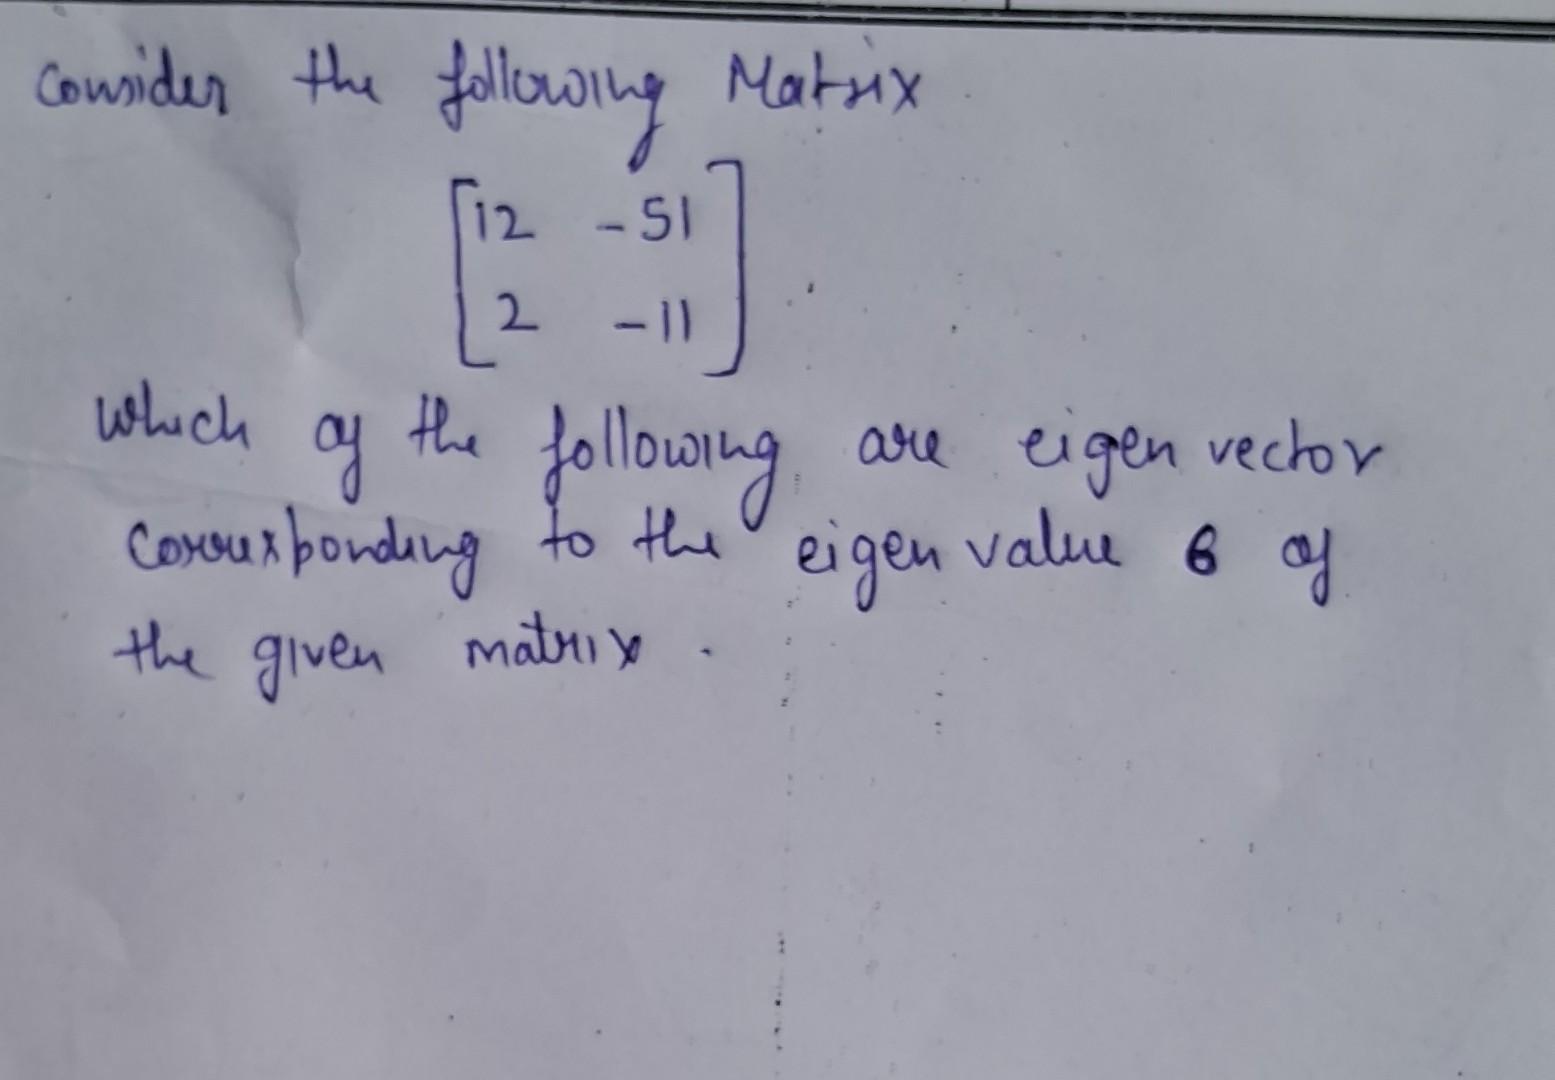 Consider the following Matrix
12 -51
2 -11
Which of the following are eigen vector
Corresponding to the eigen value 6 of
the given matrix .